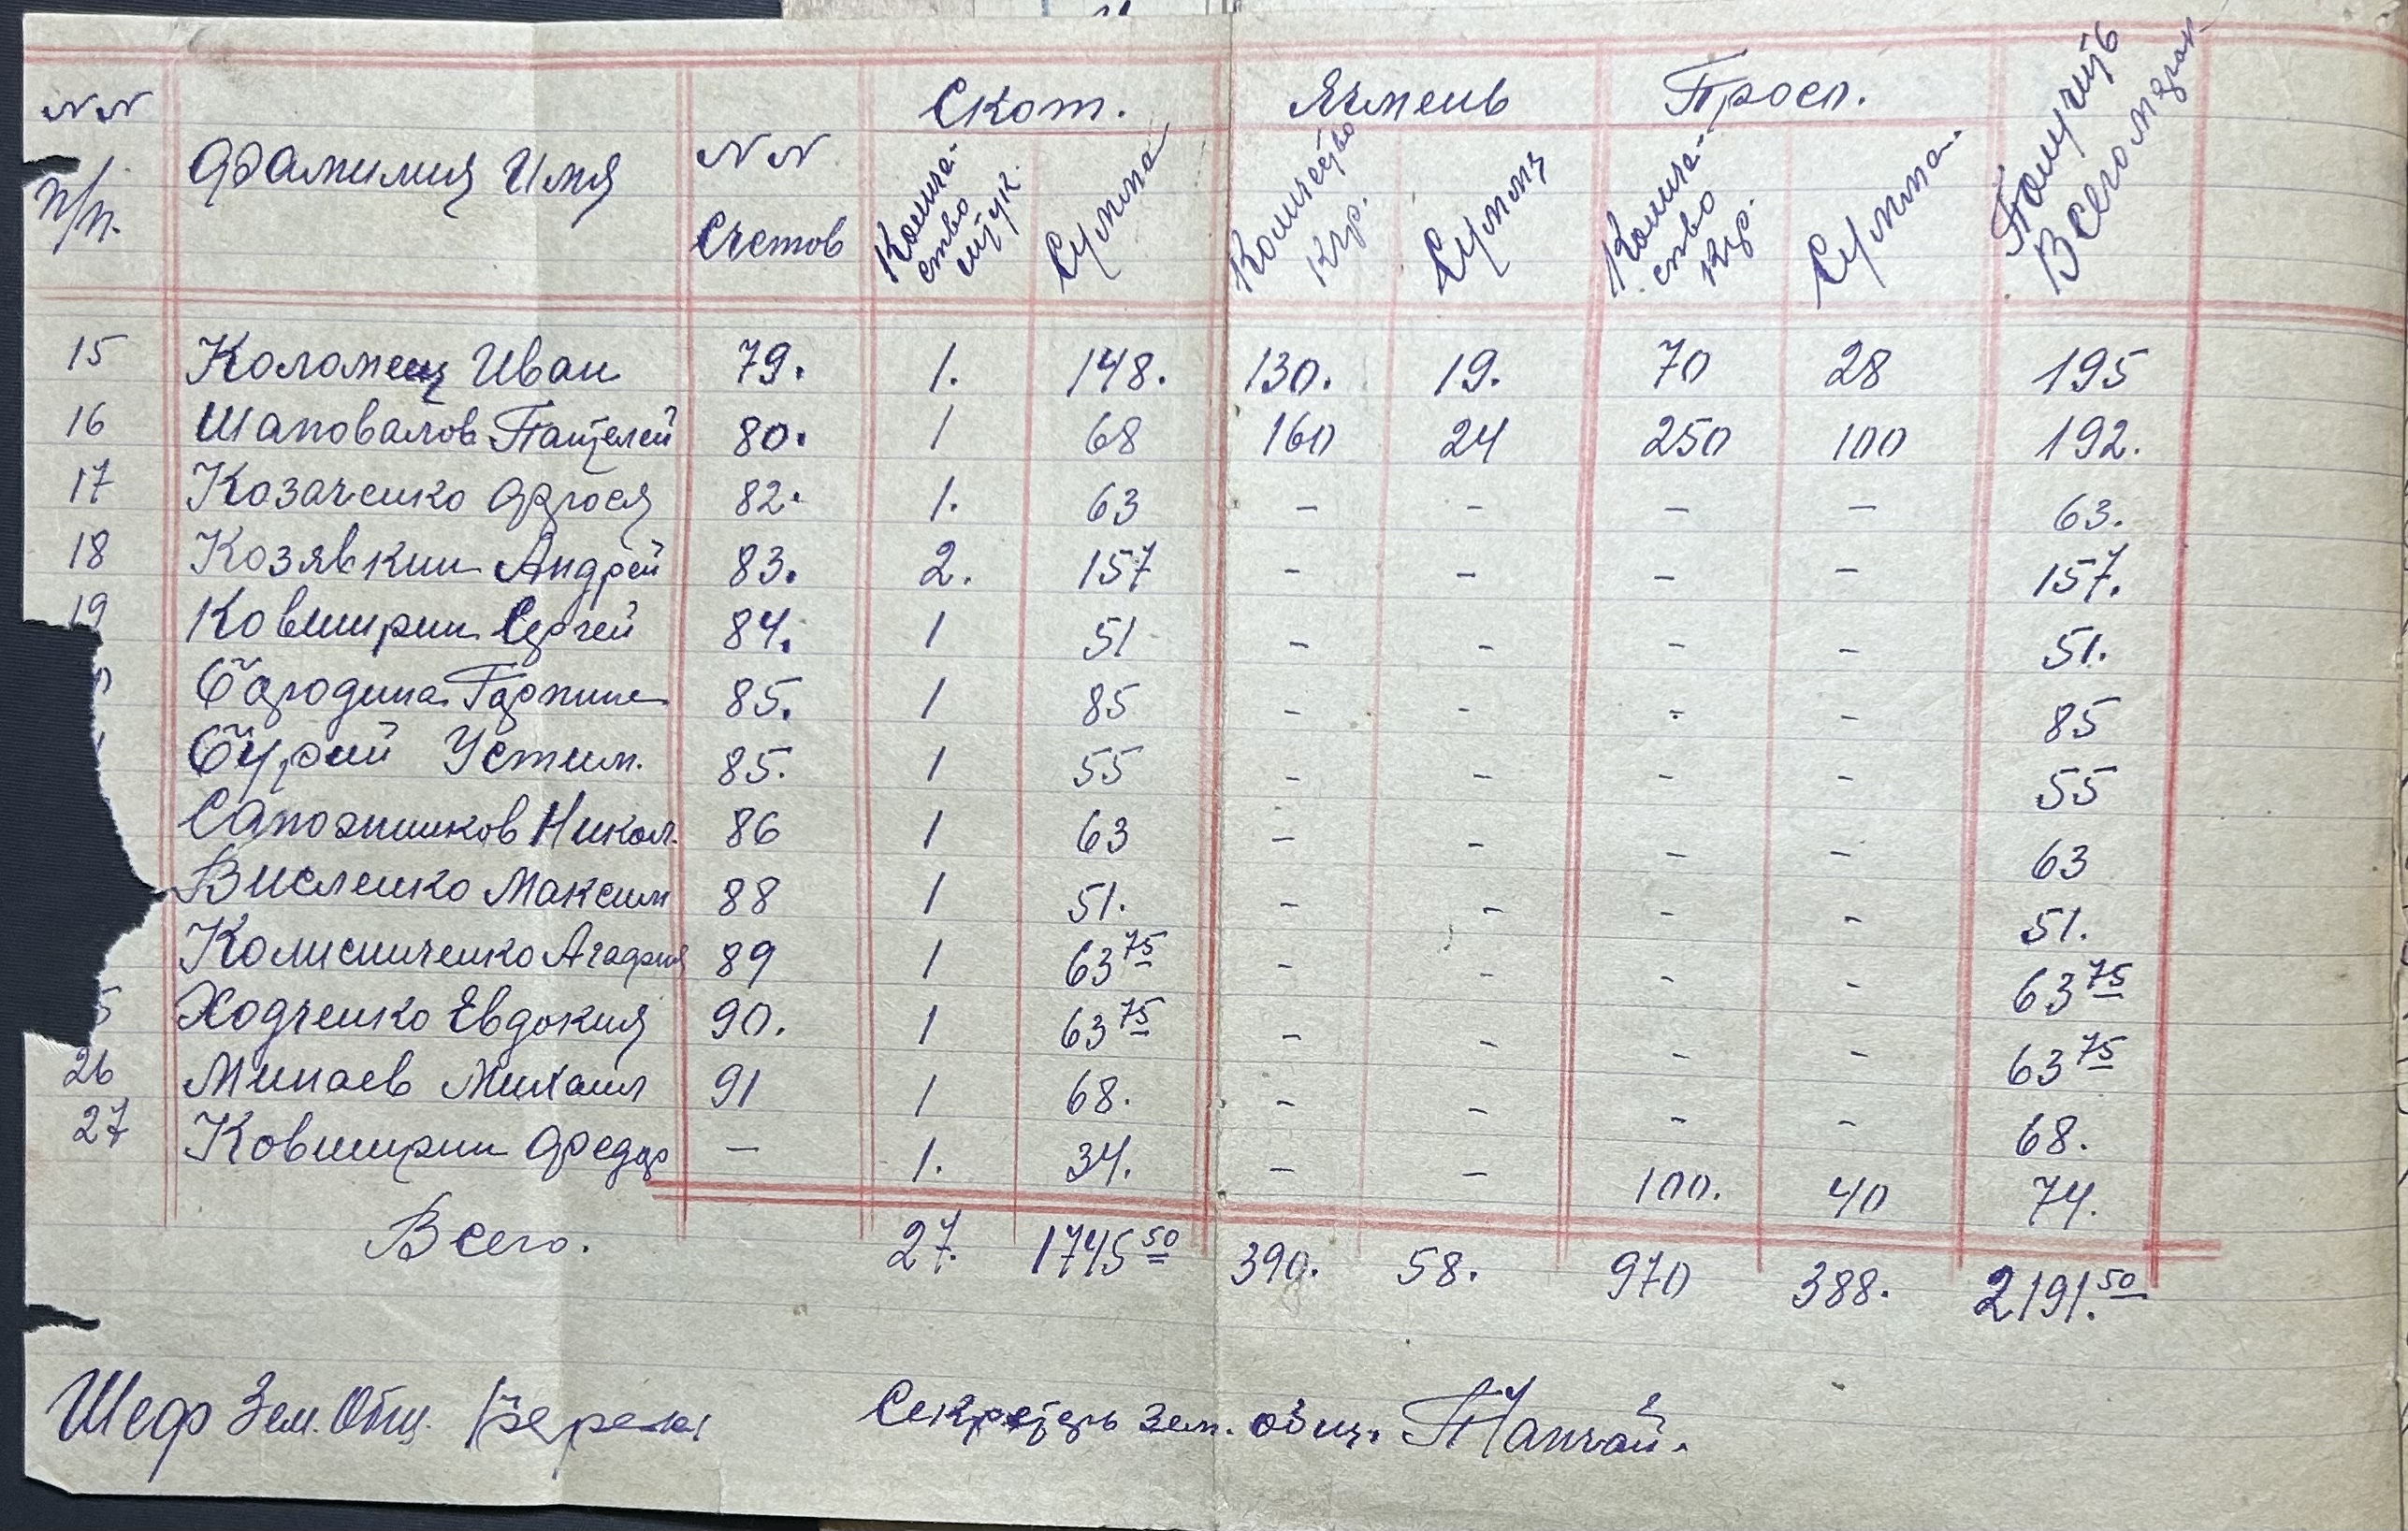 NN п/п. Фамилия Имя NN Счетов Скот. Ячмень Просо. Получить Всего марак
Количество штук. Сумма Количество Кгр. Сумма Количество Кгр. Сумма
15 Коломеец Иван 79. 1. 148. 130. 19. 70 28 195
16 Шаповалов Пантелей 80. 1 68 160 24 250 100 192.
17 Козаченко Фрося 82. 1. 63 - - - - 63.
18 Козявкин Андрей 83. 2. 157 - - - - 157.
19 Ковширин Сергей 84. 1 51 - - - - 51.
Бородина 85. 1 85 - - - - 85
Бурий Устим. 85. 1 55 - - - - 55
Сапожников Никол. 86 1 63 - - - - 63
Висленко Максим 88 1 51. - - - - 51.
Колисниченко Агафия 89 1 63 75 - - - - 63 75
Ходченко Евдокия 90. 1 63 75 - - - - 63 75
26 Минаев Михаил 91 1 68. - - - - 68.
27 Ковширин Федор — 1. 34. - - 100. 40 74.
Всего. 27. 1745 50 390. 58. 970 388. 2191. 50
Шеф Зем. Общ. Секретарь зем. общ.